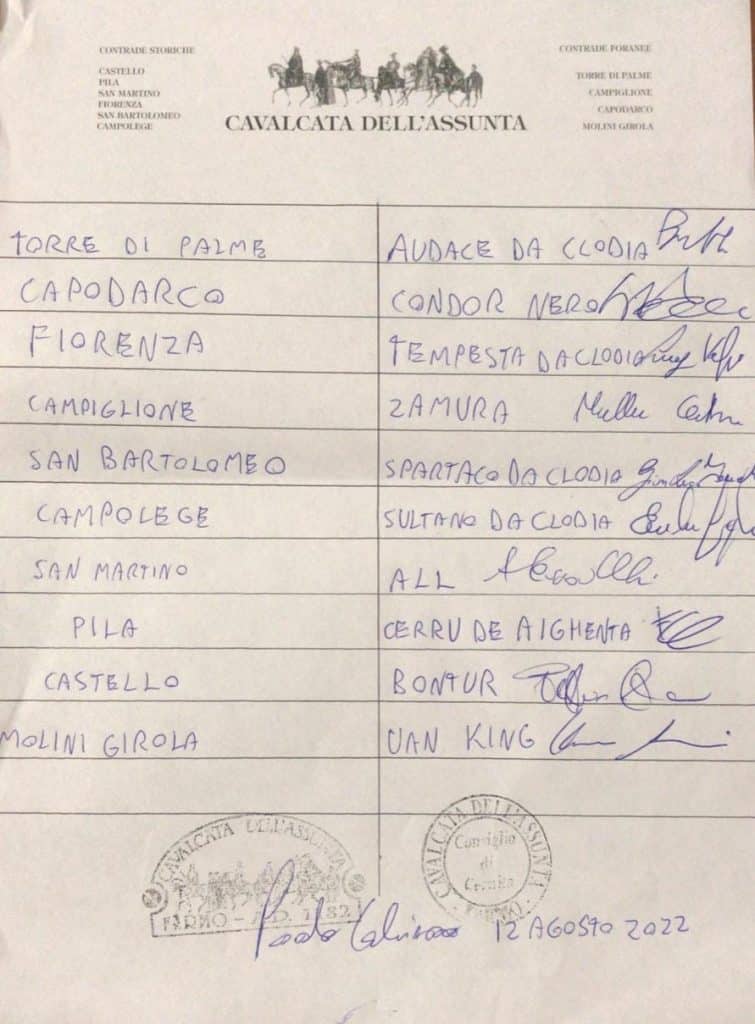 CONTRADE STORICHE
CASTELLO
PILA
SAN MARTINO
FIORENZA
SAN BARTOLOMEO
CAMPOLEGE
CAVALCATA DELL'ASSUNTA
CONTRADE FORANEE
TORRE DI PALME
CAMPIGLIONE
CAPODARCO
MOLINI GIROLA
TORRE DI PALME AUDACE DA CLODIA
CAPODARCO CONDOR NERO
FIORENZA TEMPESTA DA CLODIA
CAMPIGLIONE ZAMURA
SAN BARTOLOMEO SPARTACO DA CLODIA
CAMPOLEGE SULTANO DA CLODIA
SAN MARTINO ALL
PILA CERRU DE AIGHENTA
CASTELLO BONTUR
MOLINI GIROLA UAN KING
CAVALCATA DELL'ASSUNTA
FERMO - A.D. 1182
CAVALCATA DELL'ASSUNTA
Consiglio
di
FERMO
12 AGOSTO 2022